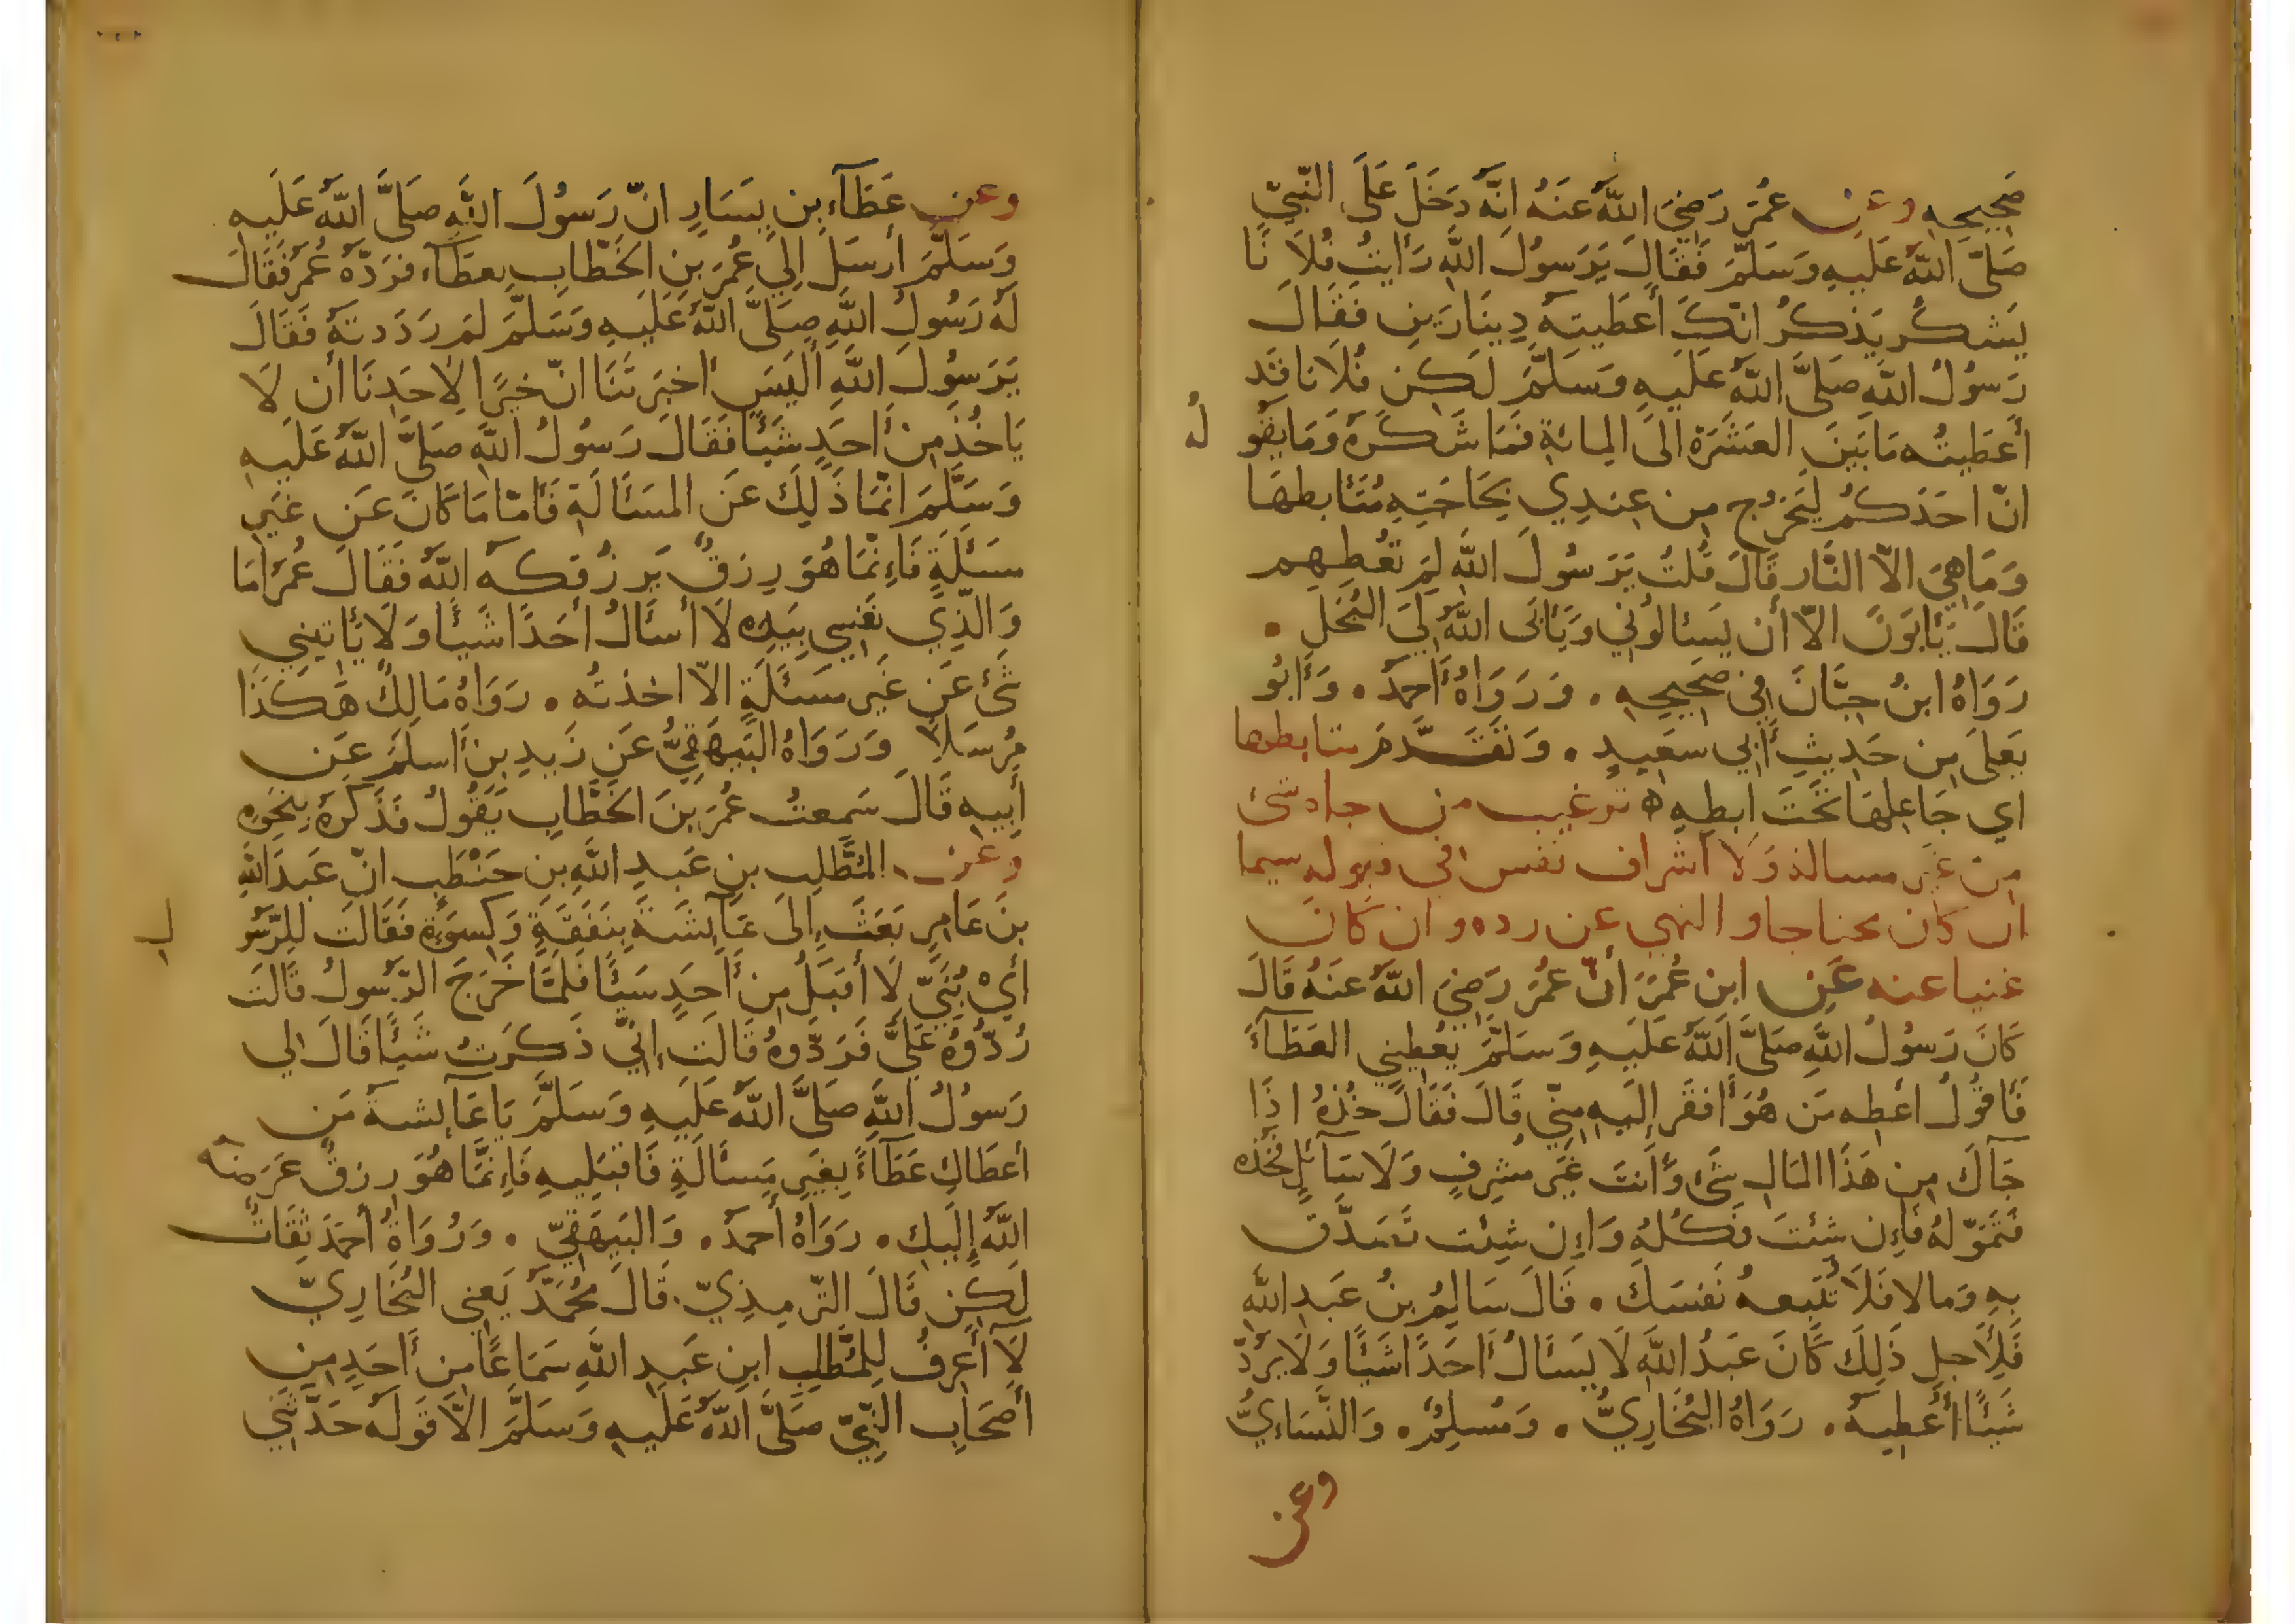 صَحِيحِهِ وعن عُمَرَ رَضِيَ اللَّهُ عَنهُ انّهُ دَخَلَ عَلَى النّبِيّ
صَلَّى اللَّهُ عَلَيهِ وَسَلَّمَ فَقَالَ يَرَسُولَ اللَّهِ رَأيتُ فُلاَنًا
يَشكُر يَذكرُ انّكَ أعطَيتَهُ دِينَارَينِ فَقَالَ
رَسُولُ اللَّهِ صَلَّى اللَّهُ عَلَيهِ وَسَلَّمَ لَكِن فُلَانا قَد
أعطَيتُه مَا بَينَ العَشَرَةِ الَى المِائةِ فَمَا شَكَرَهُ وَمَا يَقُو
لُه
انّ احَدَكُم لَيَخرُج مِن عِندِي بِحَاجَتِهِ مُتَأبطهَا
وَمَا هِيَ الاّ النَّار قَالَ قُلتُ يَرَسُولَ اللَّهِ لِمَ تُعطِهِم
قَالَ يَأبَونَ الاّ أن يَسئالُونِي وَيَأبَى اللَّهُ لِيَ البُخلَ .
رَوَاهُ ابنُ حِبَّانَ فِي صَحِيحِهِ . وَرَوَاهُ أَحمَدُ . وَأَبُو
يَعلَى مِن حَدِيثِ أَبِي سَعِيدٍ . وَتَقَدَّمَ متابطها
اي جَاعِلهَا تَحتَ ابطِهِ ه ترغيب من جاه شئ
من غير مسالة وَلا اشراف نفس في قبوله سيما
ان كان محتاجا والنهي عن رده وان كَانَ
غنيا عنه عَنِ ابنِ عُمَرَ أنّ عُمَرَ رَضِيَ اللَّهُ عَنهُ قَالَ
كَانَ رَسُولُ اللَّهِ صَلَّى اللَّهُ عَلَيهِ وَسَلَّمَ يُعطِينِي العَطَآءَ
فَأقُولُ اعطِه مَن هُوَ أَفقَر إلَيهِ مِنّي قَالَ فَقَالَ خُذهُ اذَا
جَآكَ مِن هَذَا المَالِ شَئ وَأَنتَ غَيرَ مُشرِفٍ وَلَا سَآئلٍ فَخُذه
فَتَمَوّلهُ فَاِن شِئتَ فَكُلهُ وَاِن شِئت تَصَدَّق
بِهِ وَمالا فَلَا تُتبِعهُ نَفسَكَ . قَالَ سَالِمُ بنُ عَبدِ اللَّهِ
فَلِأَجلِ ذَلِكَ كَانَ عَبدُ اللَّهِ لَا يَسئَالُ أَحَدًا شَيئًا وَلَا يَرُدّ
شَيئًا أُعطِيهُ . رَوَاهُ البُخَارِيُّ . وَمُسلِمٌ . وَالنَّسَاءِيُّ
وعن
وعن عَطَآءِ بنِ يَسَارٍ انّ رَسُولَ اللَّهِ صَلَّى اللَّهُ عَلَيهِ
وَسَلَّمَ أرسَلَ اِلَي عُمَرَ بنِ الخَطَّابِ بِعَطَآء فَرَدّهُ عُمَرُ فَقَالَ
لَهُ رَسُولُ اللَّهِ صَلَّى اللَّهُ عَلَيهِ وَسَلَّمَ لِمَ رَدَدتَهُ فَقَالَ
يَرَسُولَ اللَّهِ ألَيسَ أخبَرتَنَا انّ خَيرًا لِأحَدِنَا أن لَا
يَاخُذ مِن أَحَدٍ شَيئًا فَقَالَ رَسُولُ اللَّهِ صَلَّى اللَّهُ عَلَيهِ
وَسَلَّمَ انّمَا ذَلِكَ عَنِ المَسَئالَةِ فَأمّا مَا كَانَ عَن غَيرِ
مسَئلَةٍ فَاِنّمَا هُوَ رِزقٌ يَرزُقكَهُ اللَّهُ فَقَالَ عُمَرُ أمَا
وَالَّذِي نَفسِي بِيَدِه لَا أسئَالُ أحَدًا شَيئًا وَلَا يَأتِينِي
شَئ عَن غَيرِ مَسئَلَةٍ الاّ اخذتُه . رَوَاهُ مَالِكٌ هَكَذَا
مُرسَلاً وَرَوَاهُ البَيهَقِيُّ عَن زَيدِ بنِ أَسلَمَ عَن
أبِيهِ قَالَ سَمِعتُ عُمَرَ بنَ الخَطَّابِ يَقُولُ فَذَكَرَهُ بِنَحوِهِ
وَعن المُطَّلِبِ بنِ عَبدِ اللَّهِ بنِ حَنطَبٍ انّ عَبدَ اللَّهِ
بنَ عَامِرٍ بَعَثَ اِلَى عَآئشَةَ بِنَفَقَةٍ وَكِسوَةٍ فَقَالَت لِلرَّسُو
لِ
أيْ بُنَيَّ لَا أقبَلُ مِن أَحَدٍ شَيئًا فَلَمَّا خَرَجَ الرّسُولُ قَالَت
رُدُّوهُ عَلَيَّ فَرَدّوهُ قَالَت اِنّي ذَكَرتُ شَيئًا قَالَ لِي
رَسُولُ اللَّهِ صَلَّى اللَّهُ عَلَيهِ وَسَلَّمَ يَا عَآئشةُ مَن
أعطَاكِ عَطَآءً بِغَيرِ مَسئَالَةٍ فَاقبَلِيهِ فَاِنَّمَا هُوَ رِزقٌ عَرَضَهُ
اللَّهُ إلَيكِ . رَوَاهُ أحمَدُ . وَالبَيهَقِيّ . وَرُوَاةُ أحمَدَ ثِقَاتٌ
لَكِن قَالَ التّرمِذِيّ . قَالَ مُحَمَّدٌ يَعنِي البُخَارِيّ
لَا أَعرِفُ لِلمُطَّلِبِ ابنِ عَبدِ اللَّهِ سَمَاعًا مِن أَحَدٍ مِن
أصحَابِ النَّبِيّ صَلَّى اللَّهُ عَلَيهِ وَسَلَّمَ الاّ قَولَه حَدَّثَنِي